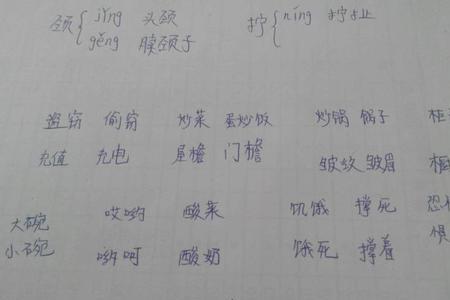 颈 jǐng 头颈 拧 níng 拧
gěng 脖颈子
盗窃 偷窃 炒菜 蛋炒饭 炒锅 锅子 柜
充值 充电 屋檐 门檐 皱纹 皱眉
大碗 哎哟 酸菜 饥饿 撑死 恐
小碗 哟呵 酸奶 饿死 撑着 惧